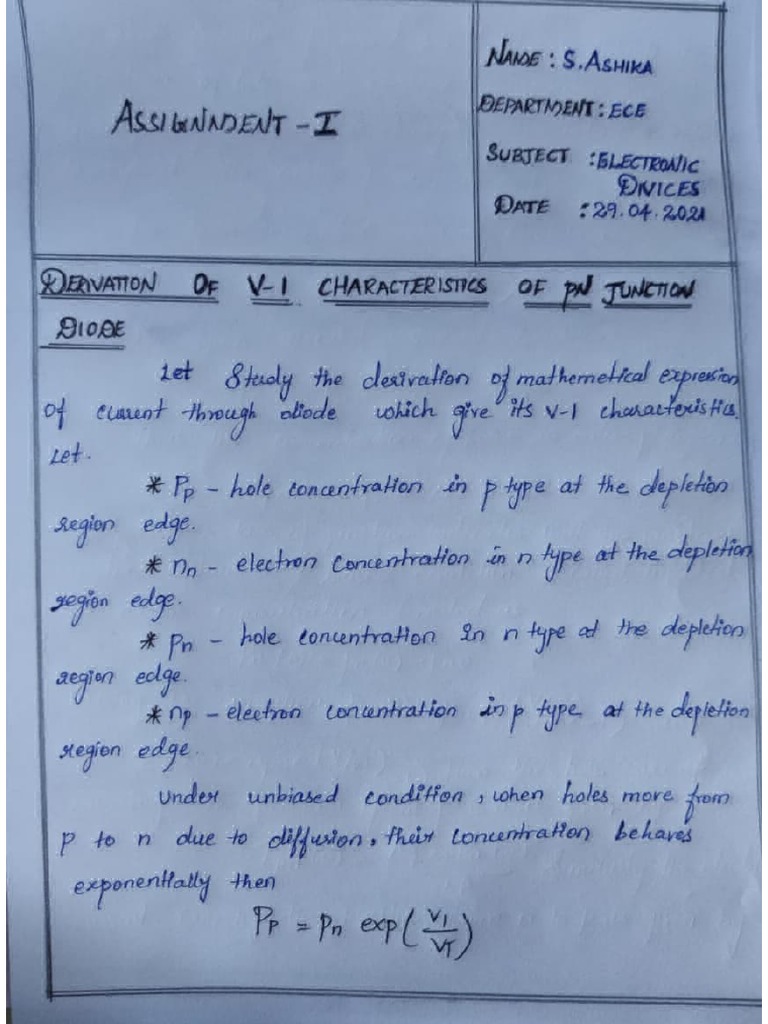 ASSIGNMENT - I
NAME : S.ASHIKA
DEPARTMENT : ECE
SUBJECT : ELECTRONIC
DIVICES
DATE : 29.04.2021
DERIVATION OF V-I CHARACTERISTICS OF PN JUNCTION
DIODE
Let Study the derivation of mathemetical expression
of current through diode which give its V-I characteristics.
Let.
* Pp - hole concentration in p type at the depletion
region edge.
* nn - electron concentration in n type at the depletion
region edge.
* Pn - hole concentration in n type at the depletion
region edge.
* np - electron concentration in p type at the depletion
region edge.
Under unbiased condition, when holes more from
p to n due to diffusion, their concentration behaves
exponentially then
Pp = Pn exp(VJ/VT)